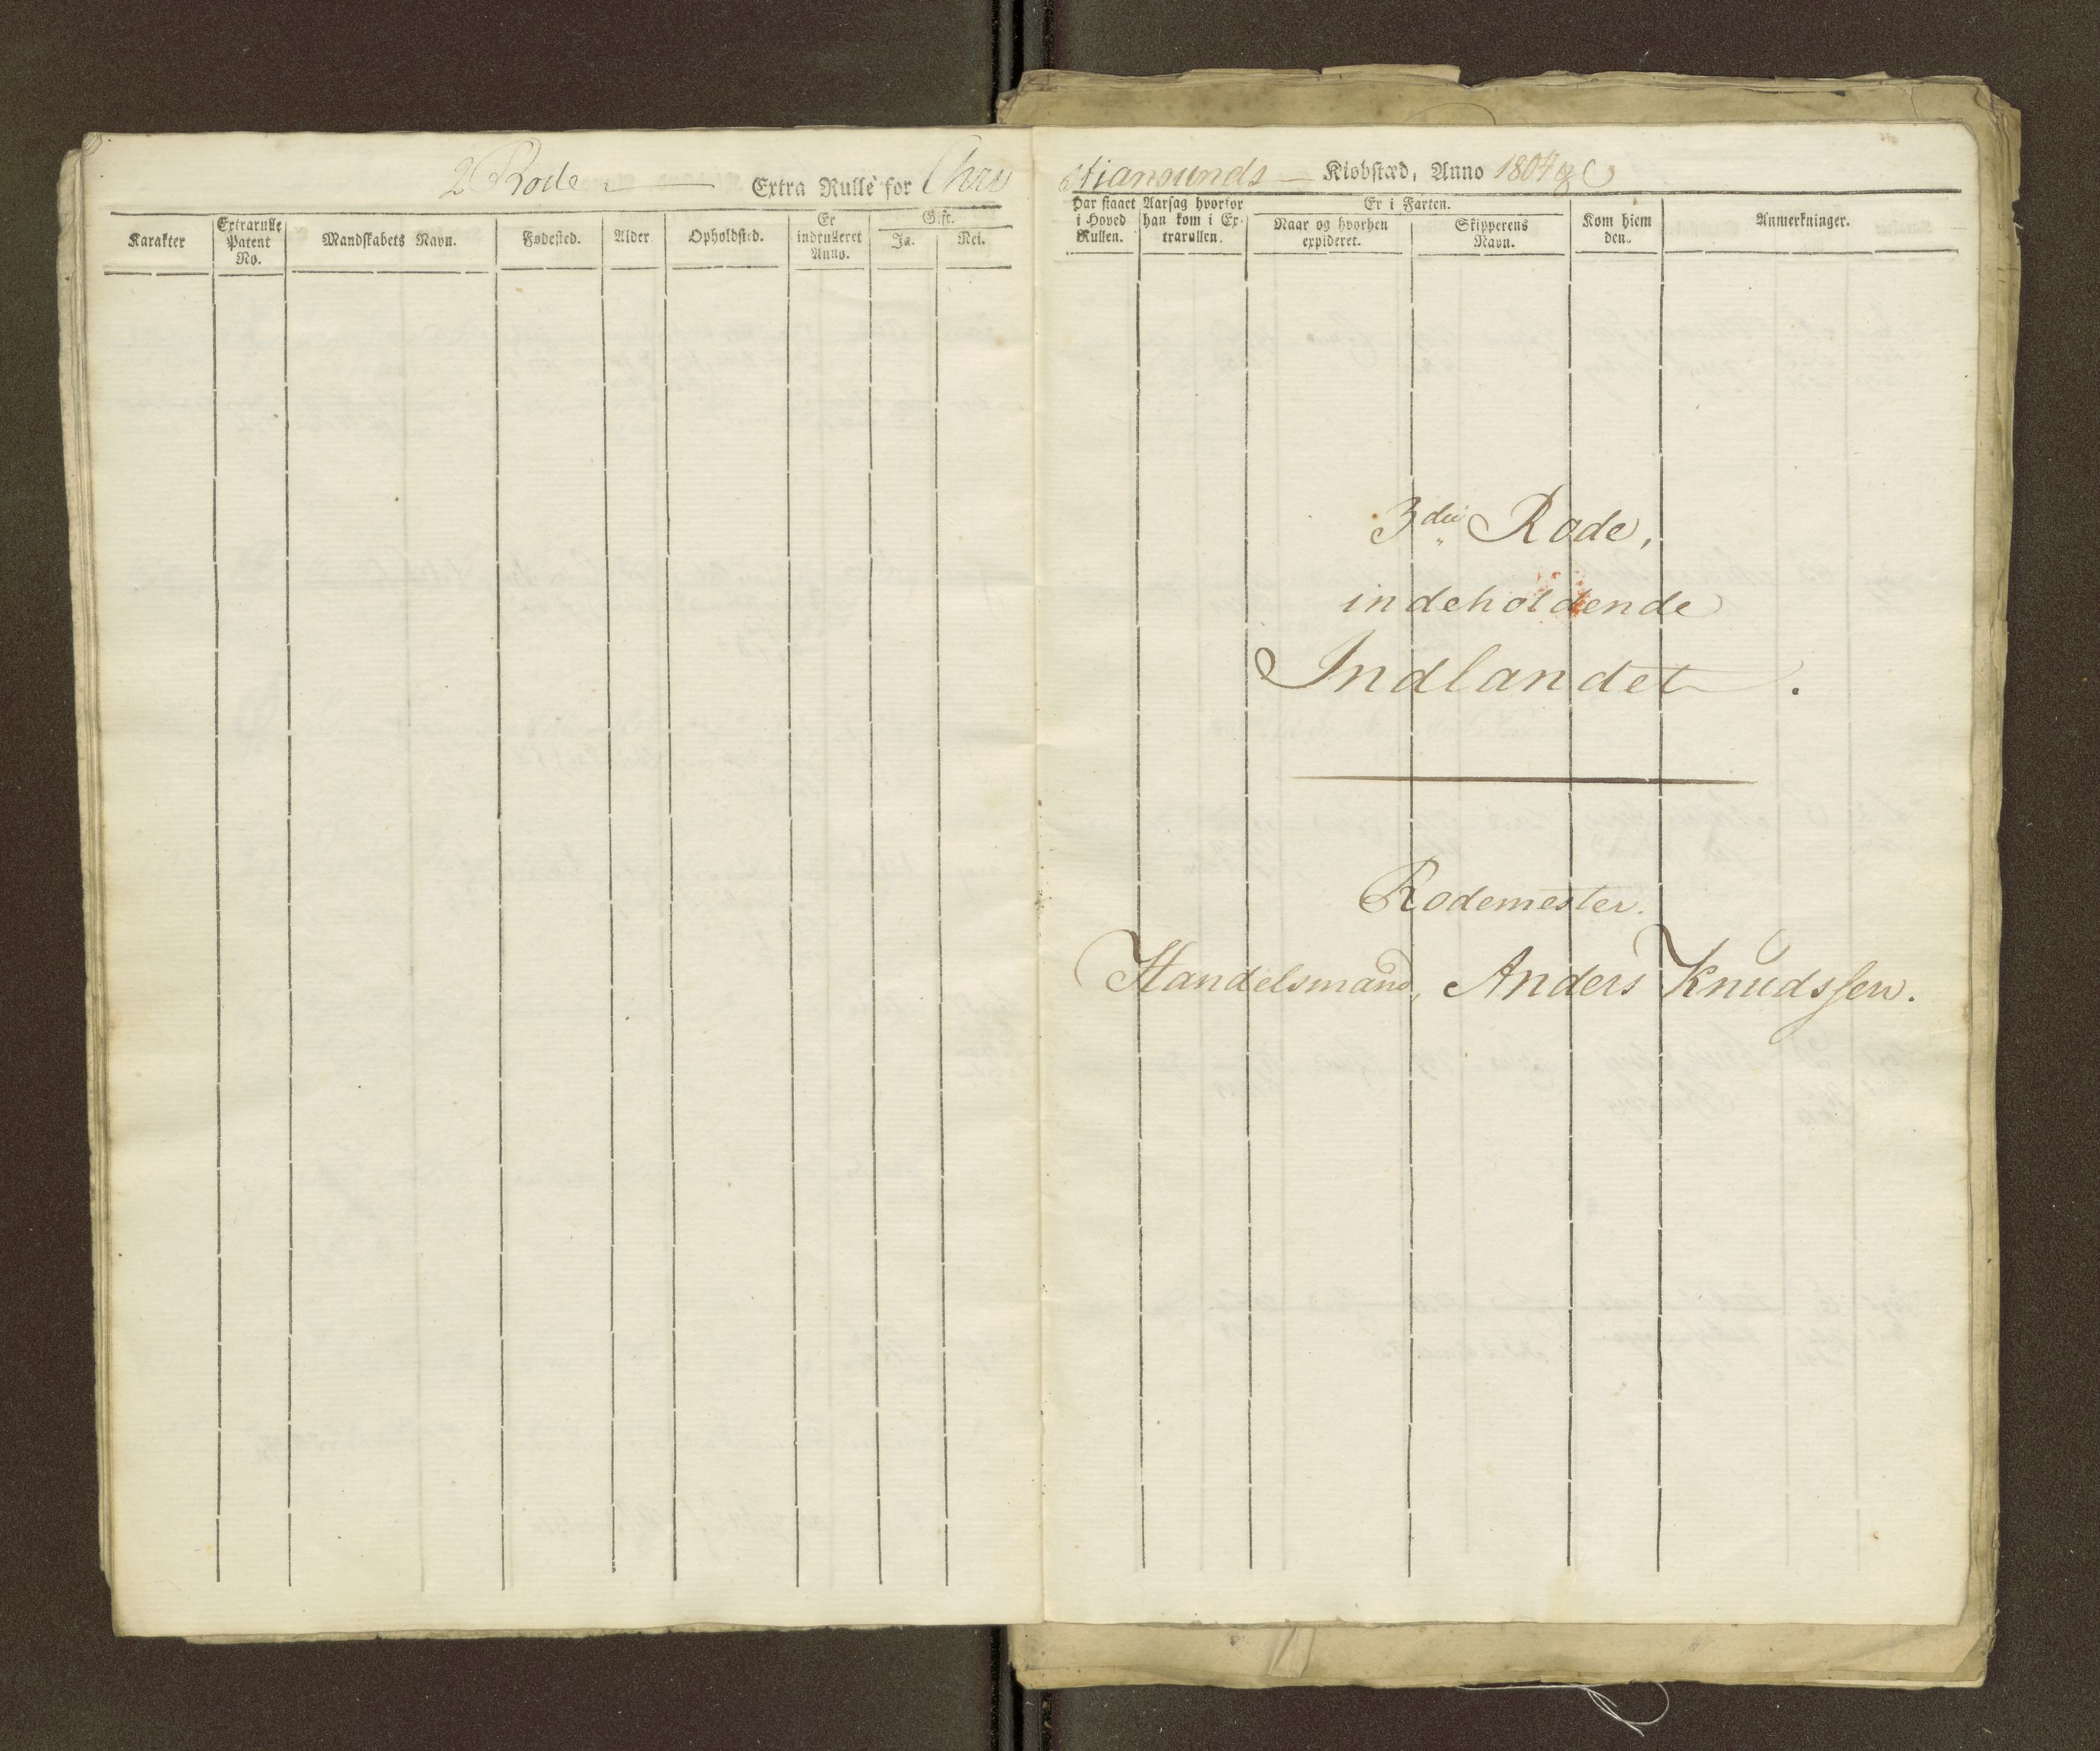 2 Rode Extra Rulle for Chri
Karakter
Extrarulle Patent No.
Mandskabets Navn.
Fødested.
Alder
Opholdsted.
Er indrulleret Anno.
Gift.
Ja.
Nei.
stiansunds Kiøbstæd, Anno 1804
Har staaet i Hoved Rullen.
Aarsag hvorfor han kom i Extrarullen.
Er i Farten.
Naar og hvorhen expideret.
Skipperens Navn.
Kom hiem den.
Anmerkninger.
3die Rode,
indeholdende
Indlandet.
Rodemester.
Handelsmand, Anders Knudssen.